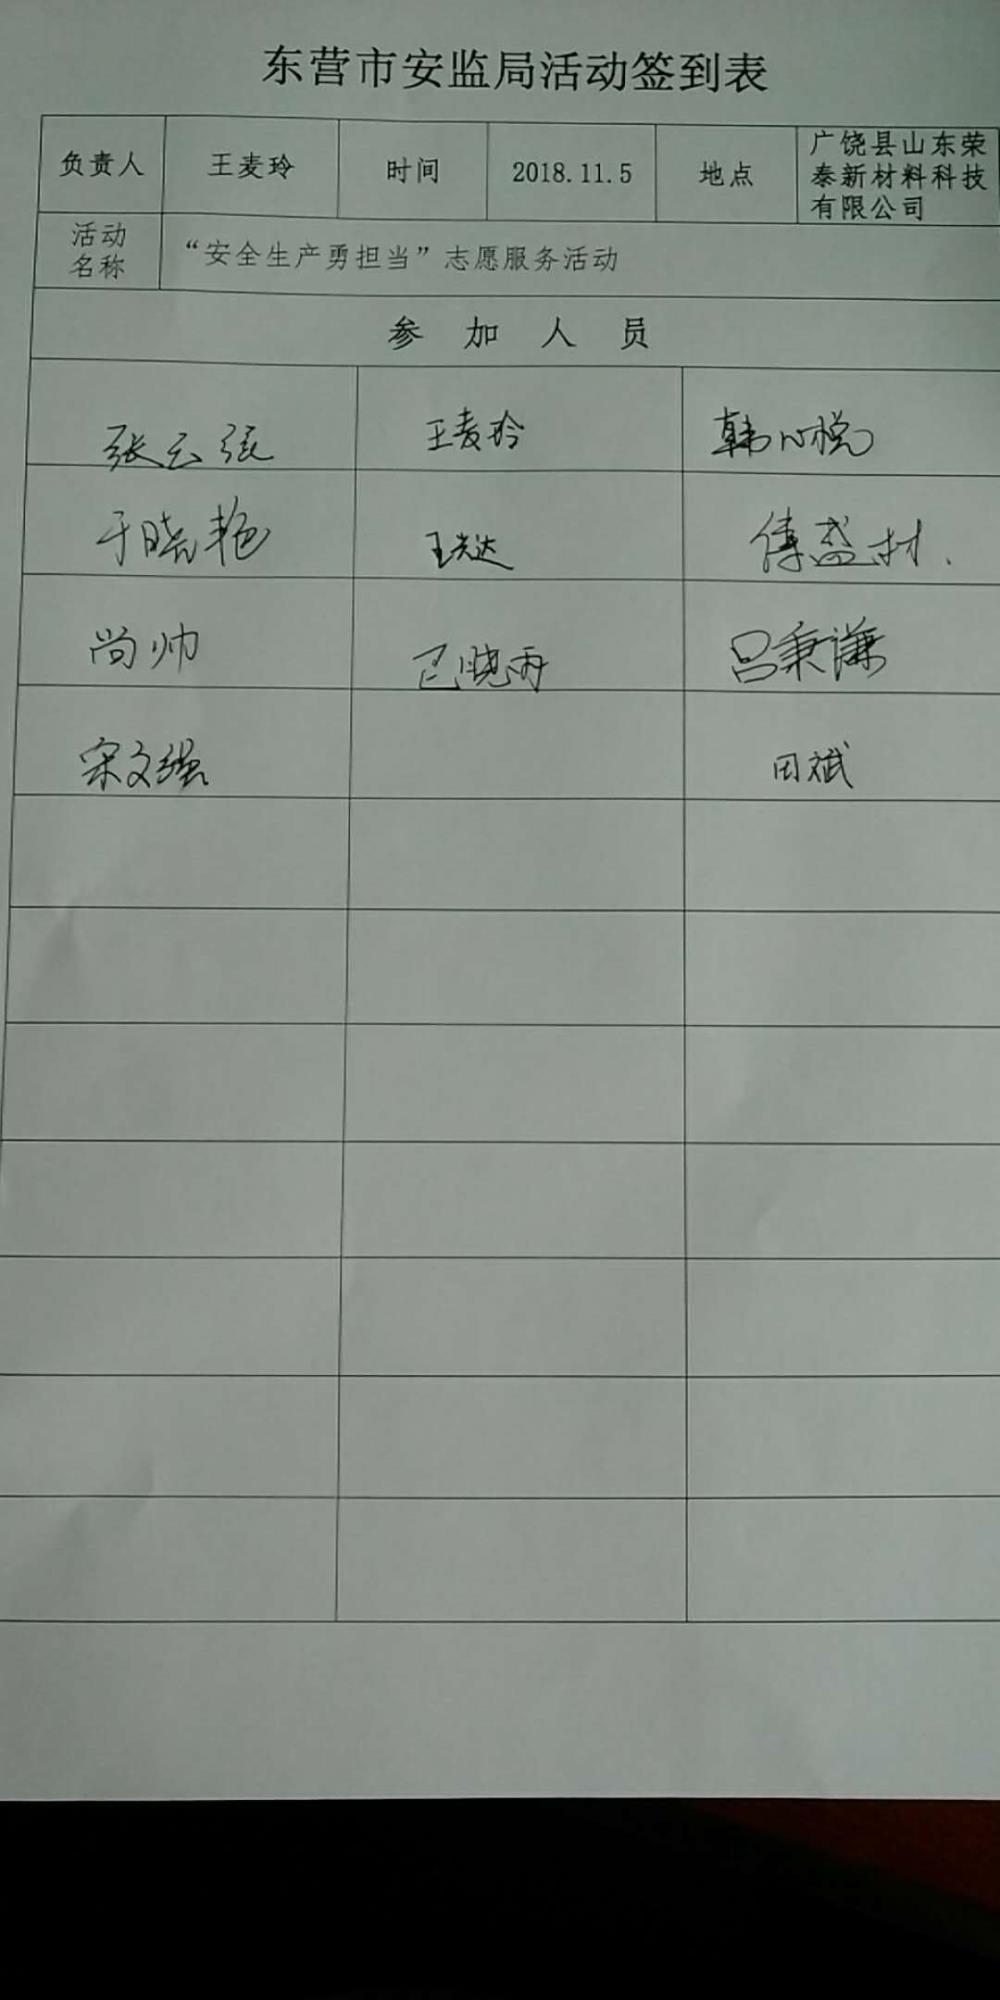 东营市安监局活动签到表
负责人 王麦玲 时间 2018.11.5 地点 广饶县山东荣
泰新材料科技
有限公司
活动
名称
“安全生产勇担当”志愿服务活动
参 加 人 员
张云强 王麦玲 韩心悦
于晓艳 王光达 傅盛材
尚帅 巴晓雨 吕秉谦
宋文强 田斌